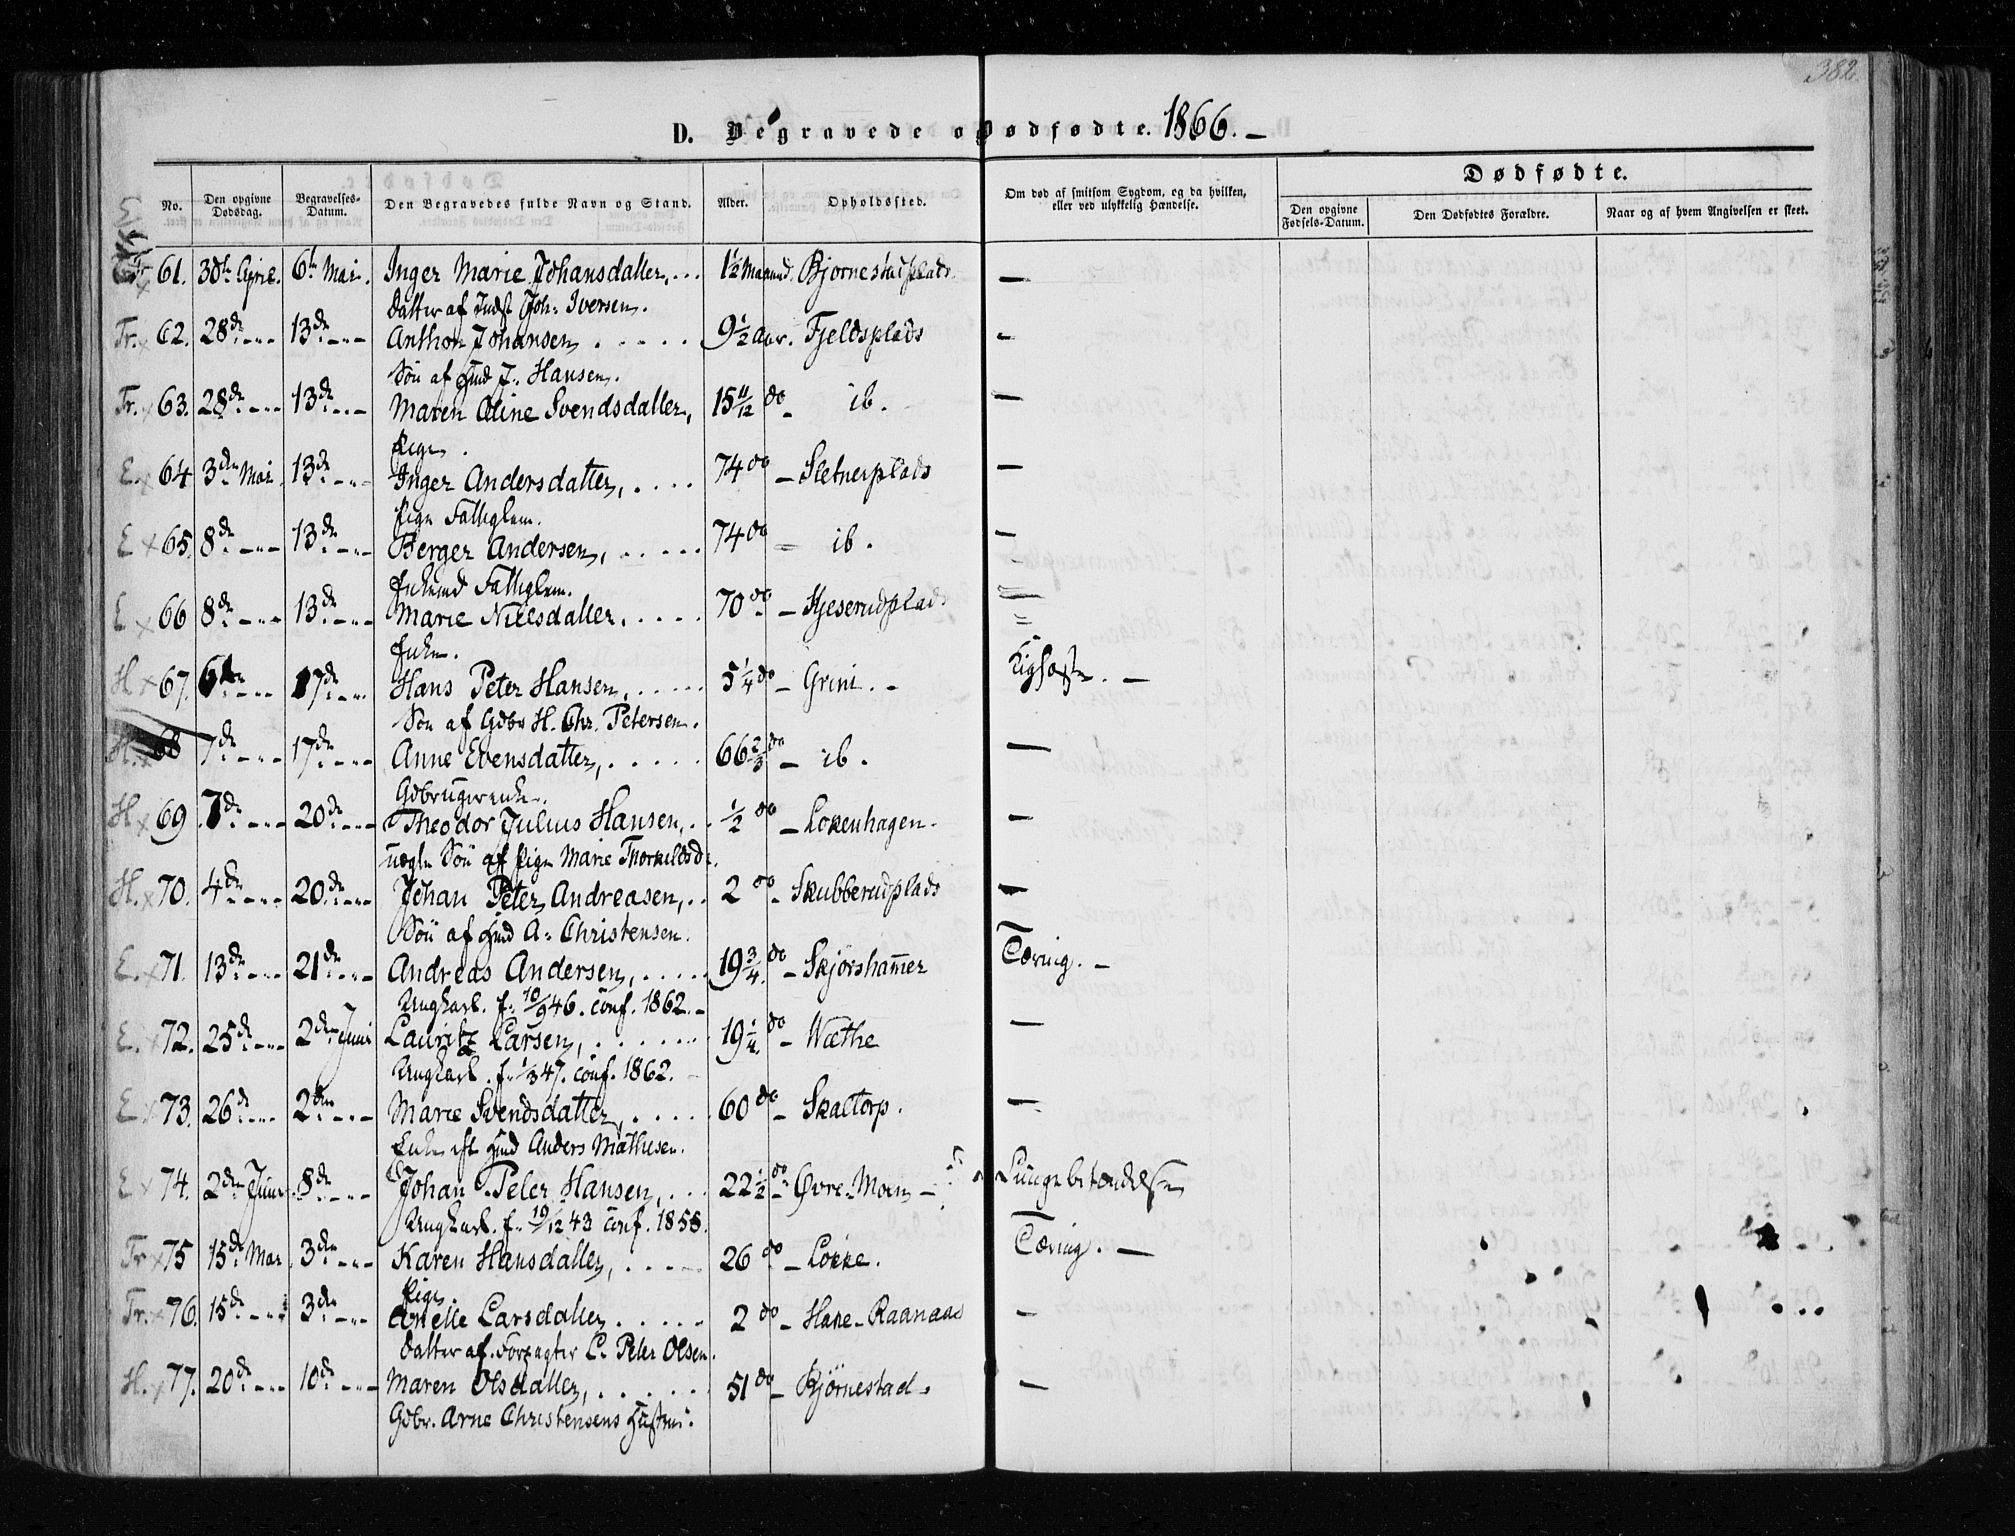 382.
D. Begravede og Dødfødte. 1866. –
Dødfødte.
No. Den opgivne Dødsdag. Begravelses-Datum. Den Begravedes fulde Navn og Stand. Alder. Opholdssted. Om død af smitsom Sygdom, og da hvilken, eller ved ulykkelig Hændelse. Den opgivne Fødsels-Datum. Den Dødfødtes Forældre. Naar og af hvem Angivelsen er skeet.
61. 30te April. 6te Mai. Inger Marie Johansdatter, . . . 1½ Maaned. Bjørnestadplads —
Datter af Indst Joh: Iversen.
Tr. x 62. 28de -..- 13de -..- Anthon Johansen . . . . . 9½ Aar. Fjeldsplads –
Søn af Hmd J. Hansen.
Tr. x 63. 28de -..- 13de -..- Maren Oline Svendsdatter, 15 11/12 do – ib. —
Pige.
E. x 64 3den Mai. 13de -..- Inger Andersdatter, . . . . 74 do – Sletnerplads —
Pige Fattiglem.
E x 65. 8de -..- 13de -..- Berger Andersen, . . . . . 74 do – ib. –
Fattiglem.
E x 66 8de -..- 13de -..- Marie Nielsdatter. . . . . 70 do – Hjeserudplads =
Enke.
H x 67. 6te -..- 17de -..- Hans Peter Hansen, . . . . . 5¼ do – Grini. –
Søn af Gdbr H. Chr. Petersen.
H. x 68 7de -..- 17de -..- Anne Evensdatter, . . . . . 66⅔ do – ib. —
Gdbrugerenke.
H x 69 7de -..- 20de -..- Theodor Julius Hansen, . . ½ do – Lokenhagen. –
uægte Søn af Pige Marie Thorkildsd:
H. x 70. 4de -..- 20de -..- Johan Peter Andreasen, . . 2 do – Skubberudplads –
Søn af Hmd A: Christensen.
E. x 71. 13de -..- 21de -..- Andreas Andersen, . . . . . 19¾ do – Skjørshammer Tæring. –
Ungkarl. f. 10/9 46. conf. 1862. –
E. x 72. 25de -..- 2den Juni Lauritz Larsen, . . . . . . 19¼ do – Wæthe —
Ungkarl. f. 1/3 47. conf. 1862. –
E. x 73. 26de -..- 2den -..- Marie Svendsdatter, . . . . 60 do – Skaltorp. —
Enke eft Hmd Anders Mathiesen.
E x 74. 2den Juni 8de -..- Johan Peter Hansen, . . . 22½ do – Øvre-Moen – Lungebetændelse
Ungkarl. f. 19/12 43 conf. 1858.
Tr x 75 15de Mai 3die -..- Karen Hansdatter, . . . . 26 do – Løkke. Tæring. —
Pige.
Tr. x 76. 15de -..- 3die -..- Anette Larsdatter, . . . . . 2 do – Hane-Raanaas –
Datter af. Forpagter L. Peter Olsen.
H. x 77. 20de -..- 10de -..- Maren Olsdatter, . . . . . . 51 do – Bjørnestad. —
Gdbr. Arne Christensens Hustru.